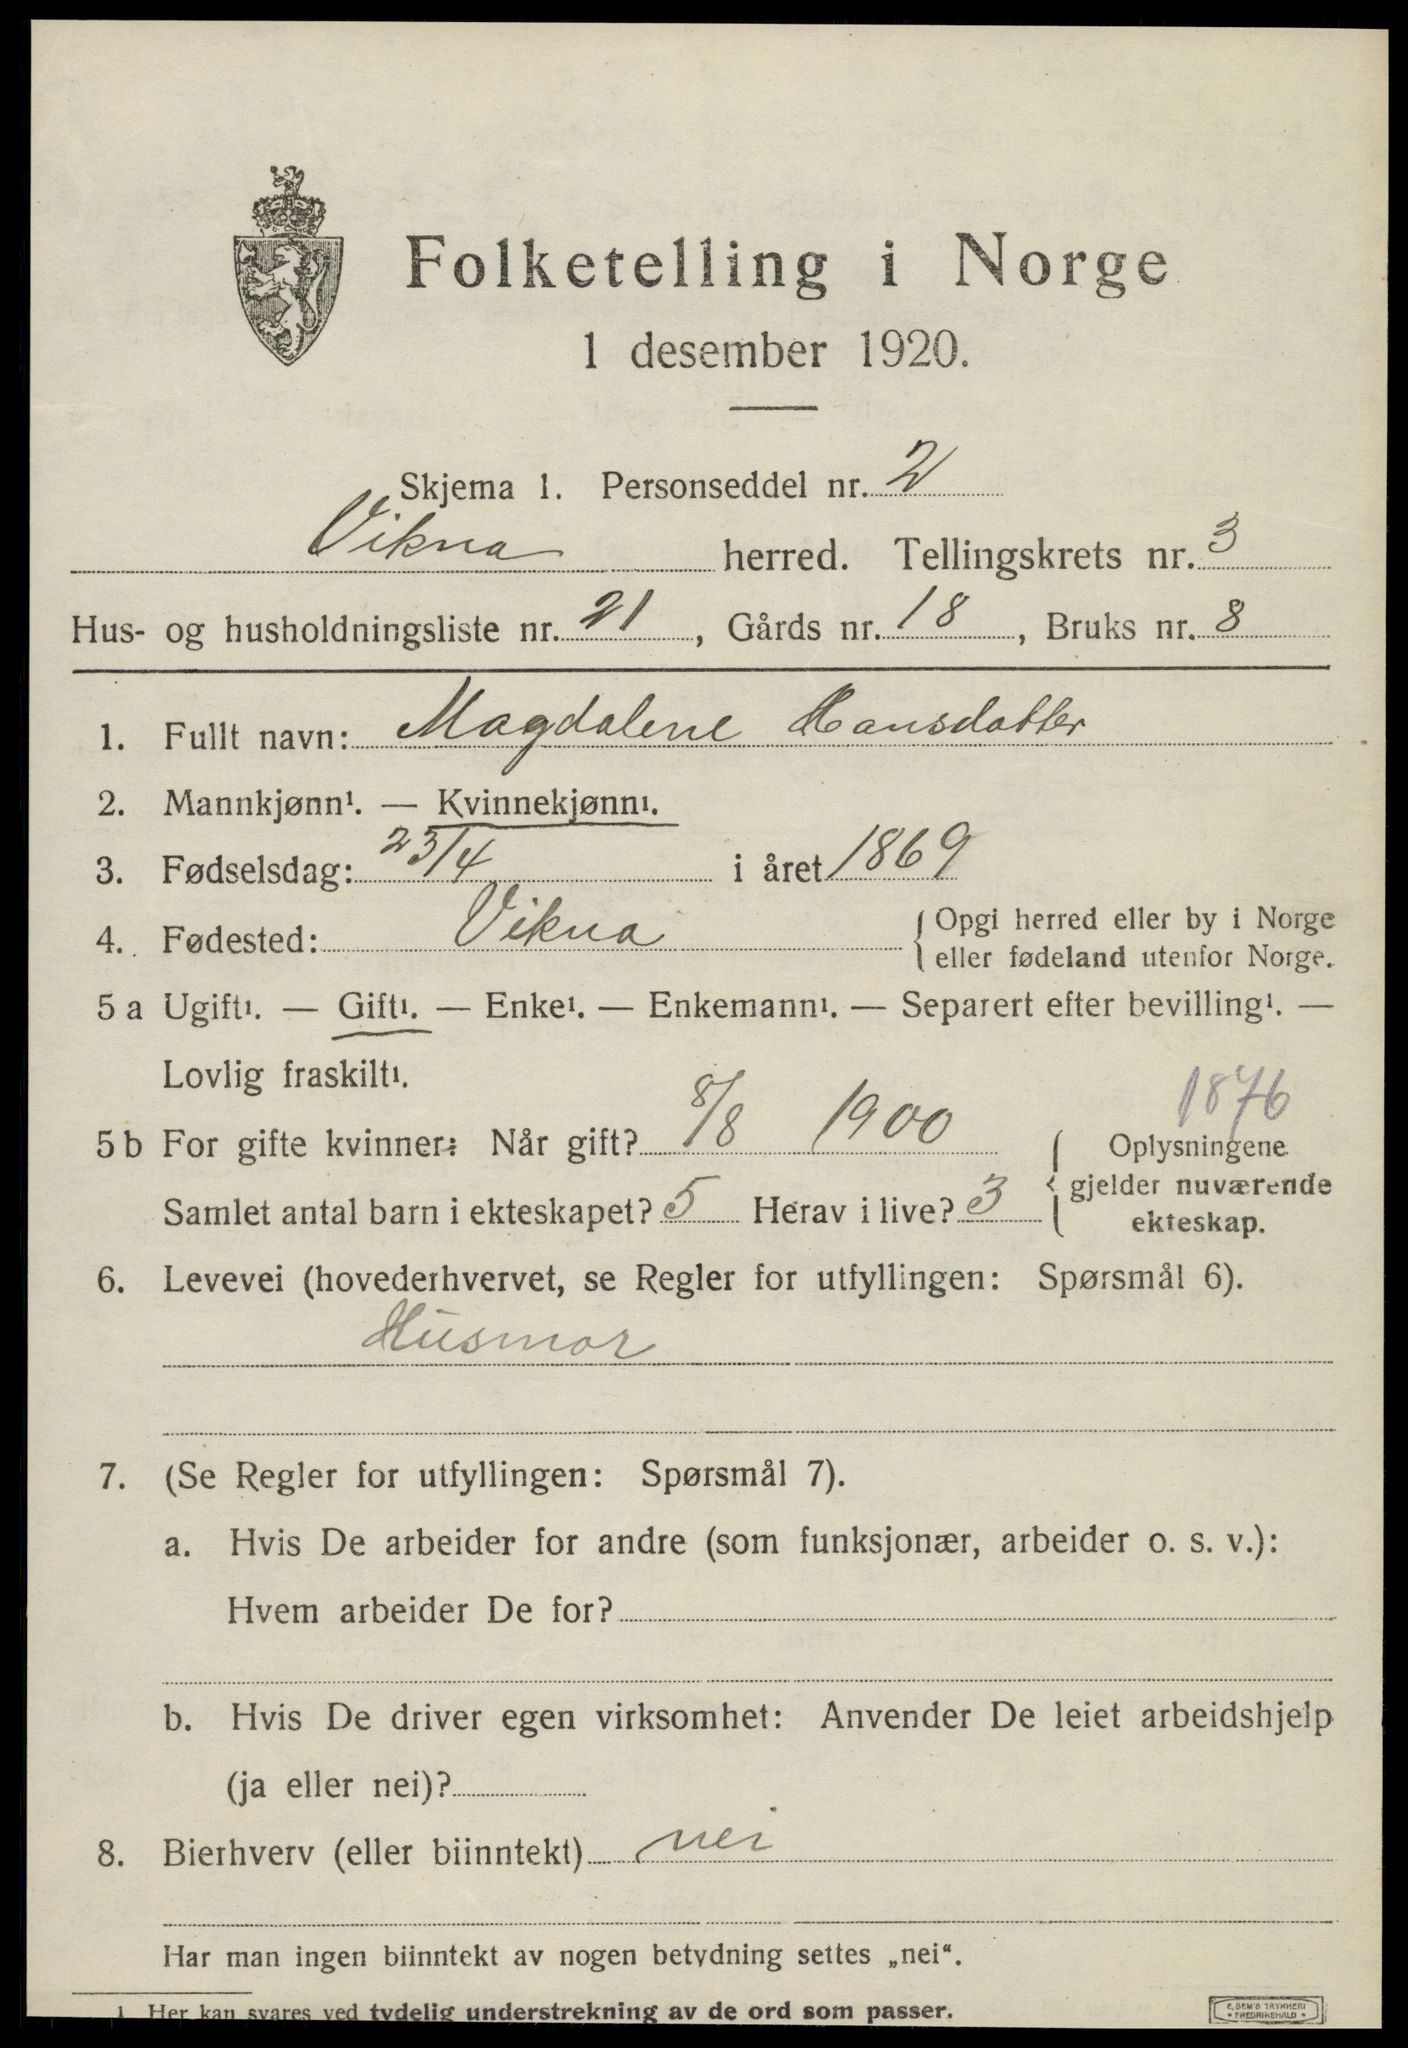 Folketelling i Norge
1 desember 1920.
Skjema 1. Personseddel nr. 2
Vikna herred. Tellingskrets nr. 3
Hus- og husholdningsliste nr. 21, Gårds nr. 18, Bruks nr. 8
1. Fullt navn: Magdalene Hansdatter
2. Mannkjønn¹. — Kvinnekjønn¹.
3. Fødselsdag: 23/4 i året 1869
4. Fødested: Vikna { Opgi herred eller by i Norge
eller fødeland utenfor Norge.
5 a Ugift¹. — Gift¹. — Enke¹. — Enkemann¹. — Separert efter bevilling¹. —
Lovlig fraskilt¹.
1876
5 b For gifte kvinner: Når gift? 8/8 1900 { Oplysningene
gjelder nuværende
Samlet antal barn i ekteskapet? 5 Herav i live? 3
ekteskap.
6. Levevei (hovederhvervet, se Regler for utfyllingen: Spørsmål 6).
Husmor
7. (Se Regler for utfyllingen: Spørsmål 7).
a. Hvis De arbeider for andre (som funksjonær, arbeider o. s. v.):
Hvem arbeider De for?
b. Hvis De driver egen virksomhet: Anvender De leiet arbeidshjelp
(ja eller nei)?
8. Bierhverv (eller biinntekt) nei
Har man ingen biinntekt av nogen betydning settes „nei“.
1 Her kan svares ved tydelig understrekning av de ord som passer.
E. SEM'S TRYKKERI
• FREDRIKSHALD •